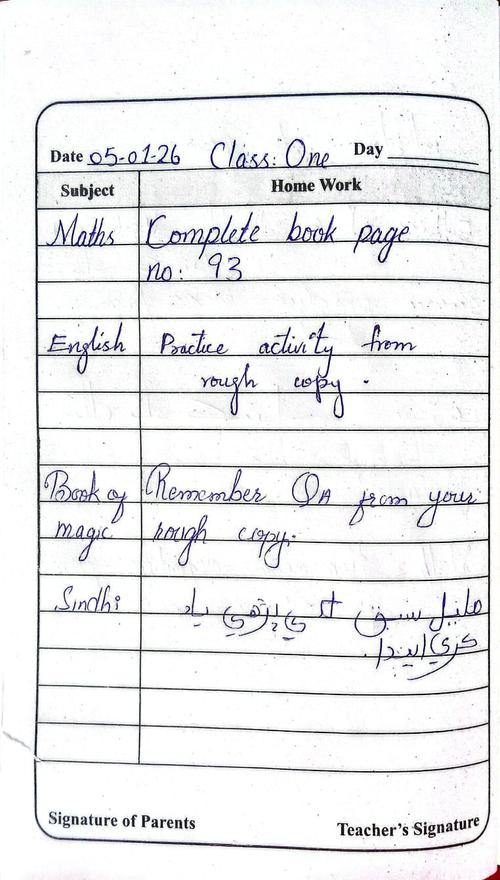 Date 05-01-26 Class: One Day
Subject Home Work
Maths Complete book page
no: 93
English Practice activity from
rough copy.
Book of Remember QA from your
magic rough copy.
Sindhi مليل سبق کي پڙهي ياد
ڪري ايندا.
Signature of Parents Teacher's Signature